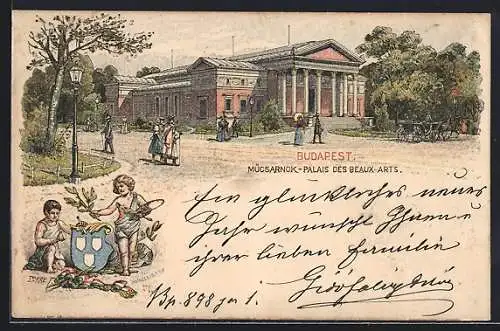 BUDAPEST.
MŰCSARNOK.-PALAIS DES BEAUX-ARTS.
Ein glückliches neues
Jahr wünscht Ihnen u
ihrer lieben Familie
Bp. 898 jan 1.